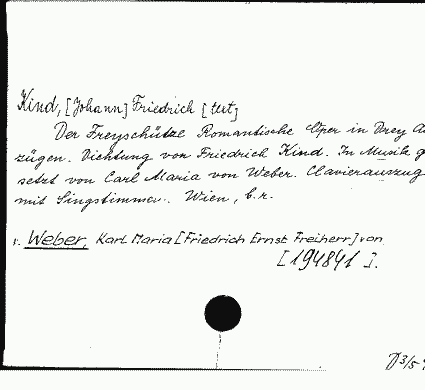 Kind, [Johann] Friedrich [text]
Der Freyschütze Romantische Oper in Drey Au
zügen. Dichtung von Friedrich Kind. In Musik g
setzt von Carl Maria von Weber. Clavierauszug
mit Singstimmen. Wien, b.r.
v. Weber, Karl Maria [Friedrich Ernst Freiherr] von
[194841].